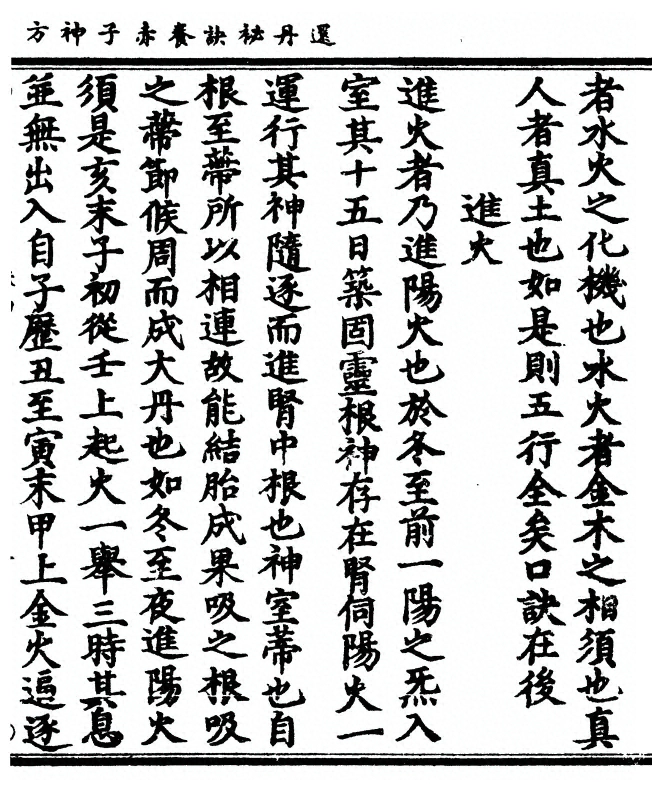 還丹祕訣養赤子神方
者水火之化機也水火者金木之相須也真
人者真土也如是則五行全矣口訣在後
進火
進火者乃進陽火也於冬至前一陽之炁入
室其十五日築固靈根神存在腎伺陽火一
運行其神隨逐而進腎中根也神室蒂也自
根至蔕所以相連故能結胎成果吸之根吸
之蔕節候周而成大丹也如冬至夜進陽火
須是亥末子初從壬上起火一舉三時其息
並無出入自子歷丑至寅末甲上金火逼逐